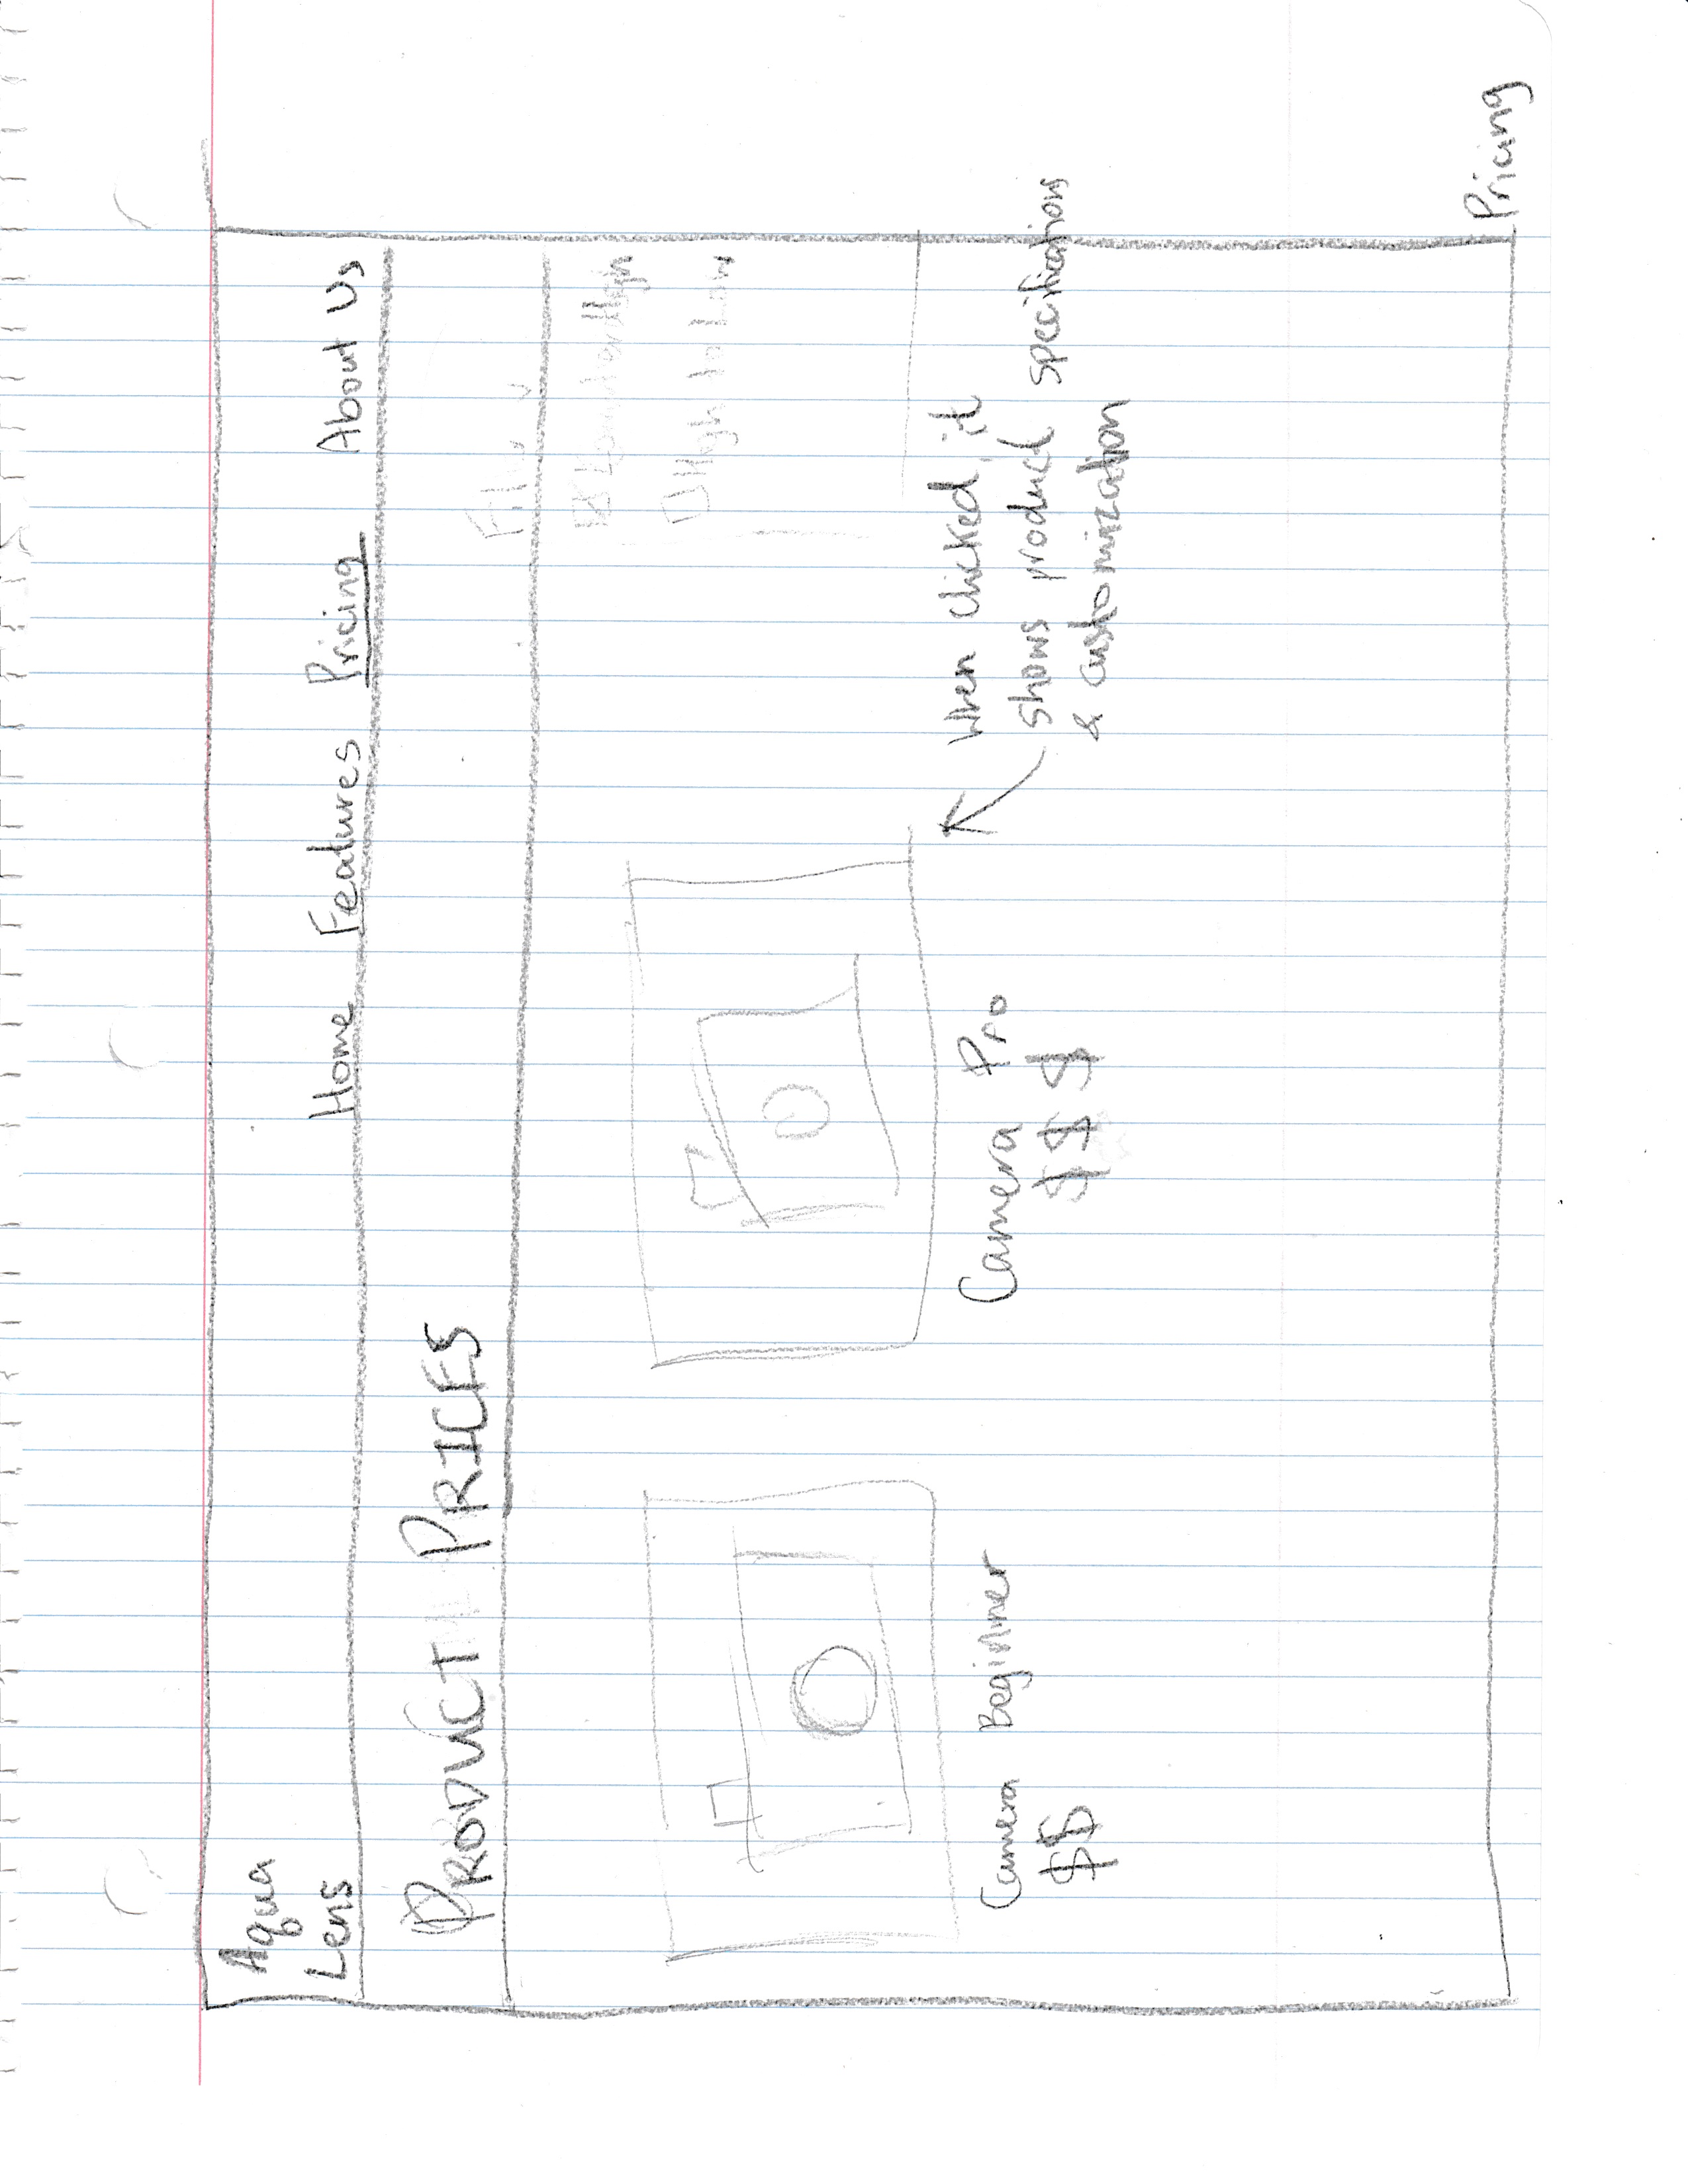 Aqua
Lens
Home Features Pricing About Us
PRODUCT PRICES
High
High to Low
Camera Beginner
$$
Camera Pro
$$$
When clicked, it
shows product specifications
& customization
Pricing